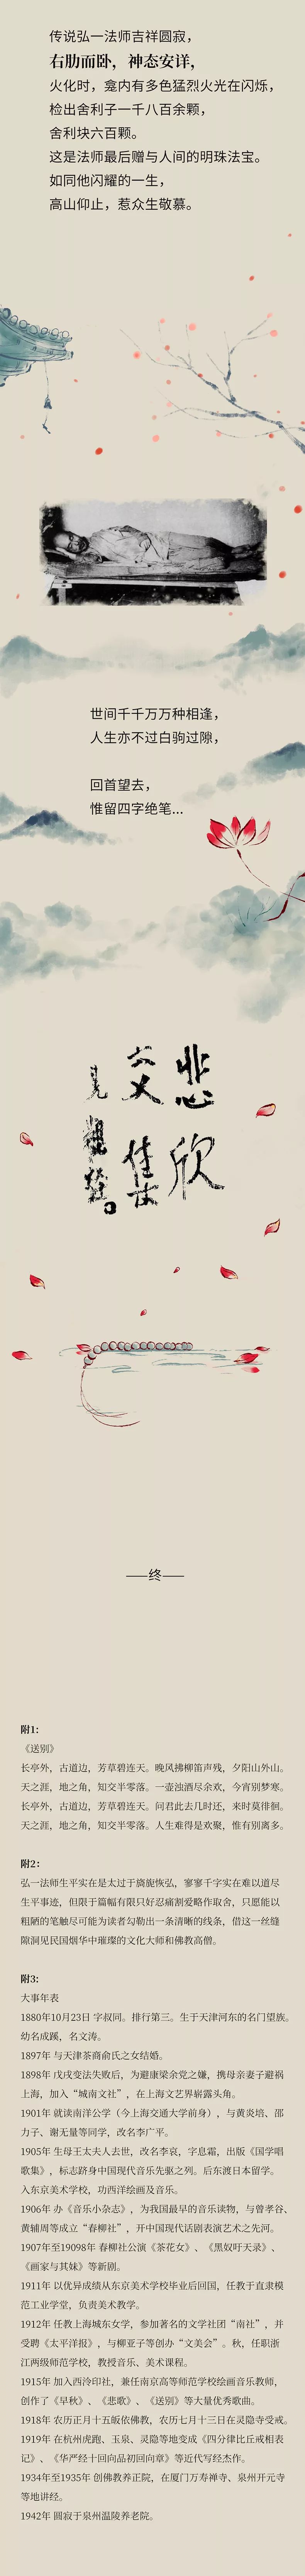 传说弘一法师吉祥圆寂，
右肋而卧，神态安详，
火化时，龛内有多色猛烈火光在闪烁，
检出舍利子一千八百余颗，
舍利块六百颗。
这是法师最后赠与人间的明珠法宝。
如同他闪耀的一生，
高山仰止，惹众生敬慕。
世间千千万万种相逢，
人生亦不过白驹过隙，
回首望去，
惟留四字绝笔...
悲欣
交集
见
观经
——终——
附1:
《送别》
长亭外，古道边，芳草碧连天。晚风拂柳笛声残，夕阳山外山。
天之涯，地之角，知交半零落。一壶浊酒尽余欢，今宵别梦寒。
长亭外，古道边，芳草碧连天。问君此去几时还，来时莫徘徊。
天之涯，地之角，知交半零落。人生难得是欢聚，惟有别离多。
附2：
弘一法师生平实在是太过于旖旎恢弘，寥寥千字实在难以道尽
生平事迹，但限于篇幅有限只好忍痛割爱略作取舍，只愿能以
粗陋的笔触尽可能为读者勾勒出一条清晰的线条，借这一丝缝
隙洞见民国烟华中璀璨的文化大师和佛教高僧。
附3:
大事年表
1880年10月23日 字叔同。排行第三。生于天津河东的名门望族。
幼名成蹊，名文涛。
1897年 与天津茶商俞氏之女结婚。
1898年 戊戌变法失败后，为避康梁余党之嫌，携母亲妻子避祸
上海，加入“城南文社”，在上海文艺界崭露头角。
1901年 就读南洋公学（今上海交通大学前身），与黄炎培、邵
力子、谢无量等同学，改名李广平。
1905年 生母王太夫人去世，改名李哀，字息霜，出版《国学唱
歌集》，标志跻身中国现代音乐先驱之列。后东渡日本留学。
入东京美术学校，功西洋绘画及音乐。
1906年 办《音乐小杂志》，为我国最早的音乐读物，与曾孝谷、
黄辅周等成立“春柳社”，开中国现代话剧表演艺术之先河。
1907年至19098年 春柳社公演《茶花女》、《黑奴吁天录》、
《画家与其妹》等新剧。
1911年 以优异成绩从东京美术学校毕业后回国，任教于直隶模
范工业学堂，负责美术教学。
1912年 任教上海城东女学，参加著名的文学社团“南社”，并
受聘《太平洋报》，与柳亚子等创办“文美会”。秋，任职浙
江两级师范学校，教授音乐、美术课程。
1915年 加入西泠印社，兼任南京高等师范学校绘画音乐教师，
创作了《早秋》、《悲歌》、《送别》等大量优秀歌曲。
1918年 农历正月十五皈依佛教，农历七月十三日在灵隐寺受戒。
1919年 在杭州虎跑、玉泉、灵隐等地变成《四分律比丘戒相表
记》、《华严经十回向品初回向章》等近代写经杰作。
1934年至1935年 创佛教养正院，在厦门万寿禅寺、泉州开元寺
等地讲经。
1942年 圆寂于泉州温陵养老院。